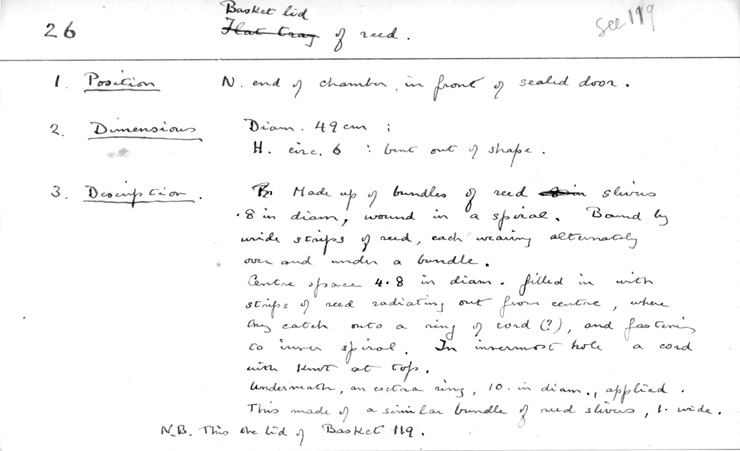 26
Basket lid
Flat tray of reed.
See 119
1. Position N. end of chamber, in front of sealed door.
2. Dimensions Diam. 49 cm ;
H. circ. 6 : bent out of shape.
3. Description. Made up of bundles of reed slivers
.8 in diam, wound in a spiral. Bound by
wide strips of reed, each weaving alternately
over and under a bundle.
Centre space 4.8 in diam. filled in with
strips of reed radiating out from centre, where
they catch onto a ring of cord (?), and fastening
to inner spiral. In innermost hole a cord
with knot at top.
Underneath, an extra ring, 10. in diam., applied.
This made of a similar bundle of reed slivers, 1. wide.
N.B. This the lid of Basket 119.